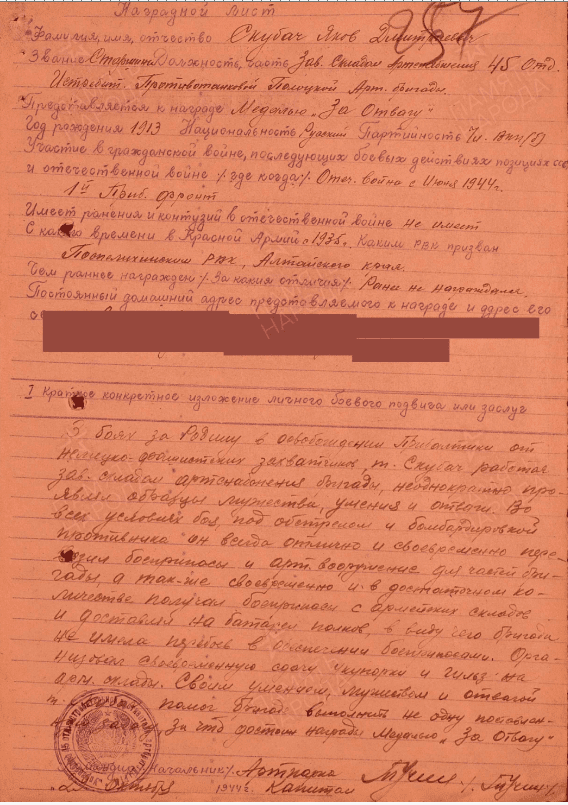 Наградной лист
Фамилия, имя, отчество Скубач Яков Дмитриевич
Звание Старшина Должность, часть Зав. Складом Артснабжения 45 Отд.
Истребит. Противотанковой Полоцкой Арт. бригады.
Предоставляется к награде Медалью „За Отвагу"
Год рождения 1913 Национальность Русский Партийность Чл. ВКП(б)
Участие в гражданской войне, последующих боевых действиях позициях ссср
и отечественной войне /где когда/ Отеч. война с Июня 1944г.
1й Приб. фронт
Имеет ранения и контузий в отечественной войне не имеет
С какого времени в Красной Армии с 1935г. Каким РВК призван
Поспелихинским РВК, Алтайского края.
Чем раннее награжден /за какия отличия/ Ранее не награждался.
Постоянный домашний адрес предотовляемого к награде и адрес его
I Краткое конкретное изложение личного боевого подвига или заслуг
В боях за Родину в освобождении Прибалтики от
немецко-фашистских захватчиков, т. Скубач работая
зав. складом артснабжения бригады, неоднократно про-
являл образцы мужества, умения и отваги. Во
всех условиях боя, под обстрелом и бомбардировкой
противника он всегда отлично и своевременно
боеприпасы и арт. вооружение для частей бри-
гады, а так-же своевременно и в достаточном ко-
личестве получал боеприпасы с армейских складов
и доставлял на батареи полков, в виду чего бригада
не имела перебоев в обеспечении боеприпасами. Орга-
низовал своевременную сдачу укупорки и гильз на
арт. склады. Своим умением, мужеством и отвагой
помог бригаде выполнить не одну поставлен-
За что достоин награды Медалью „За Отвагу"
Начальник/ Артгракна
Октября 1944г. Капитан